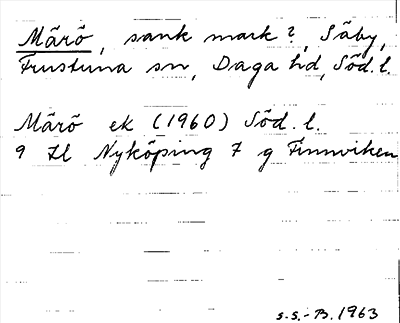 Mårö, sank mark?, Såby,
Frustuna sn, Daga hd, Söd. l.
Mårö ek (1960) Söd. l.
9 Nyköping 7 g Finnviken
S.S.-B. 1963